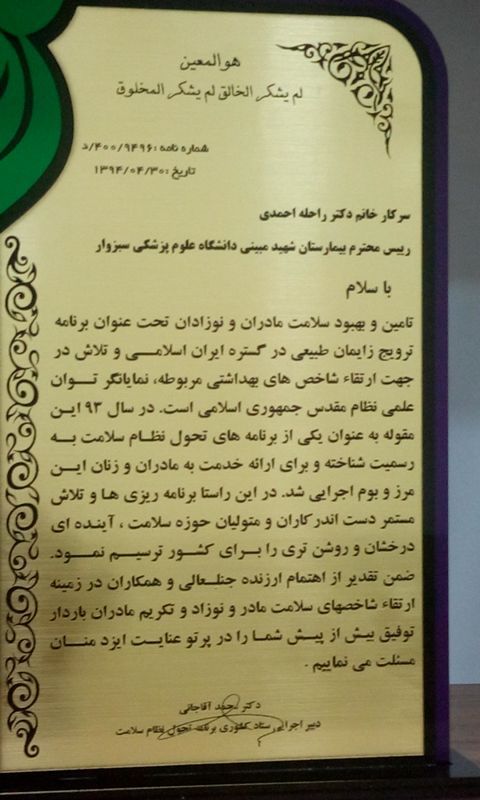 هوالمعین
لم یشکر الخالق لم یشکر المخلوق
شماره نامه :۴۰۰/۹۴۹۶/د
تاریخ :۱۳۹۴/۰۴/۳۰
سرکار خانم دکتر راحله احمدی
رییس محترم بیمارستان شهید مبینی دانشگاه علوم پزشکی سبزوار
با سلام
تامین و بهبود سلامت مادران و نوزادان تحت عنوان برنامه
ترویج زایمان طبیعی در گستره ایران اسلامی و تلاش در
جهت ارتقاء شاخص های بهداشتی مربوطه، نمایانگر توان
علمی نظام مقدس جمهوری اسلامی است. در سال ۹۳ این
مقوله به عنوان یکی از برنامه های تحول نظام سلامت به
رسمیت شناخته و برای ارائه خدمت به مادران و زنان این
مرز و بوم اجرایی شد. در این راستا برنامه ریزی ها و تلاش
مستمر دست اندرکاران و متولیان حوزه سلامت ، آینده ای
درخشان و روشن تری را برای کشور ترسیم نمود.
ضمن تقدیر از اهتمام ارزنده جنابعالی و همکاران در زمینه
ارتقاء شاخصهای سلامت مادر و نوزاد و تکریم مادران باردار
توفیق بیش از پیش شما را در پرتو عنایت ایزد منان
مسئلت می نماییم .
دکتر محمد آقاجانی
دبیر اجرایی ستاد کشوری برنامه تحول نظام سلامت